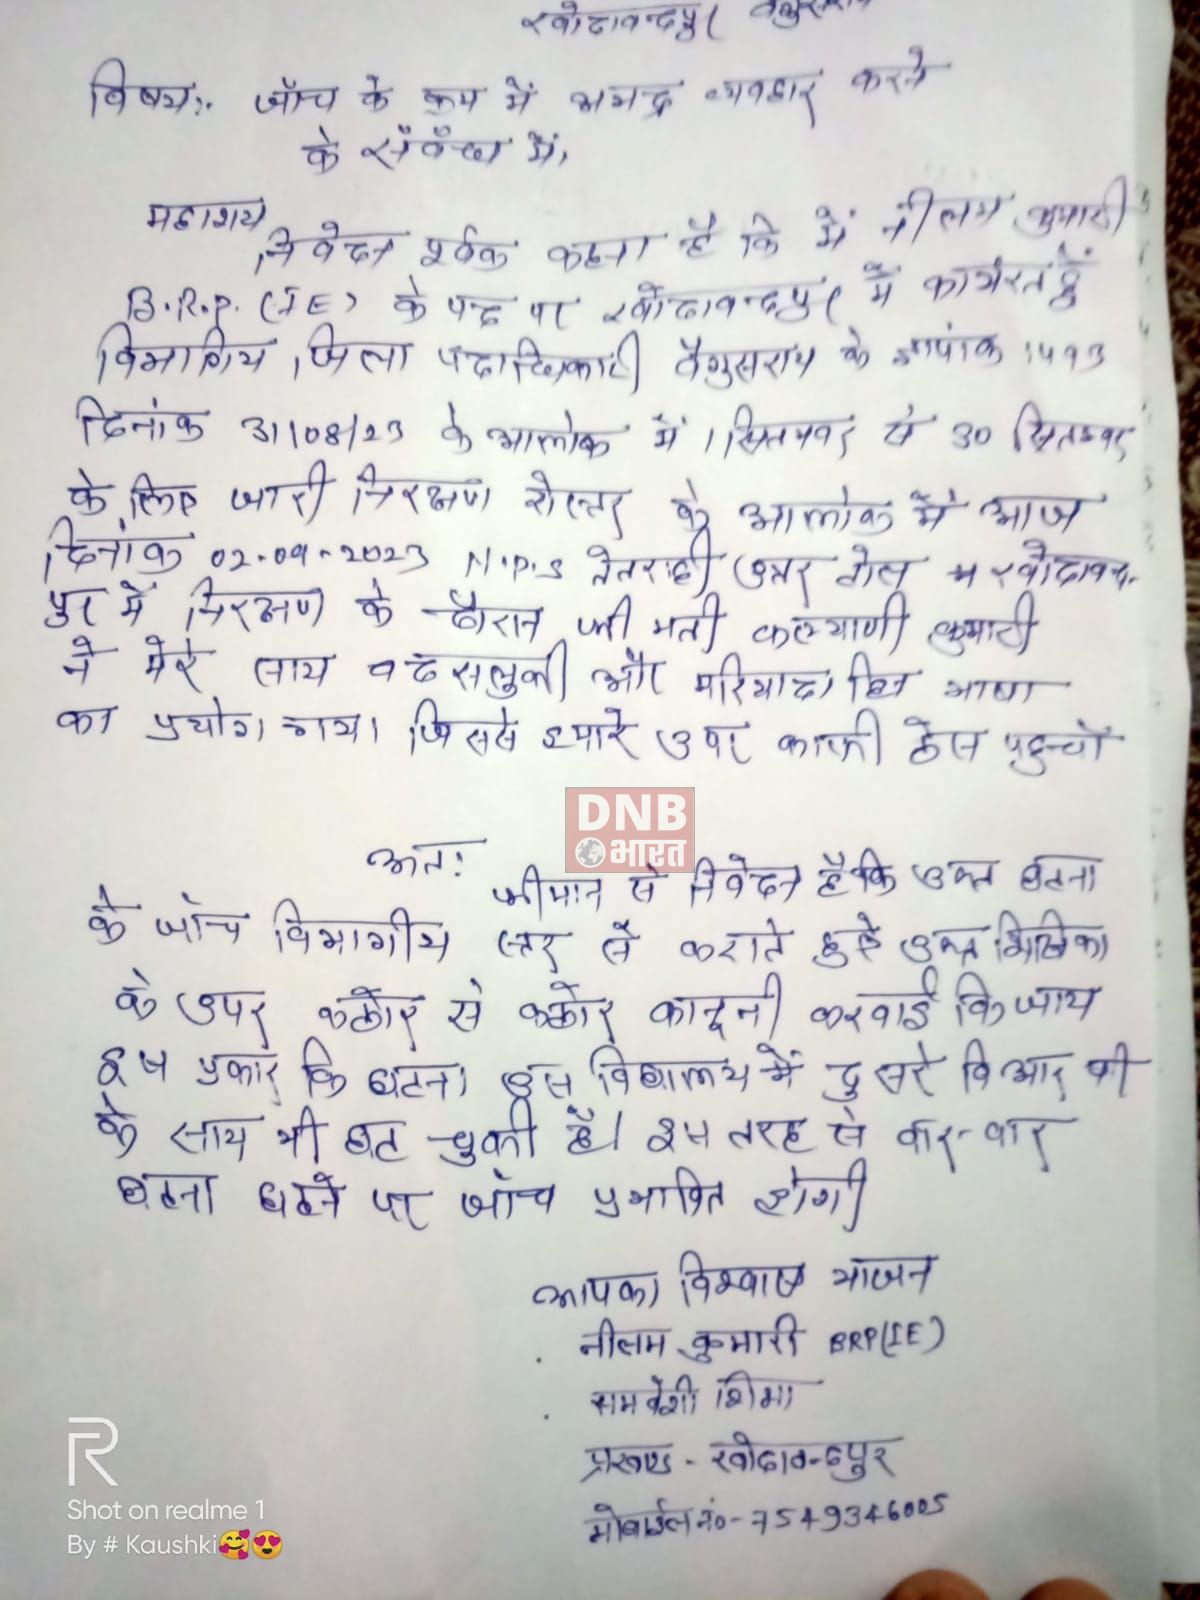 खोदावन्दपुर बेगुसराय
विषय:- जाँच के क्रम में अभद्र व्यवहार करने
के संबंध में,
महाशय
निवेदन पूर्वक कहना है कि मैं नीलम कुमारी
B.R.P. (IE) के पद पर खोदावन्दपुर में कार्यरत हूँ
विभागिय जिला पदाधिकारी बेगुसराय के ज्ञापांक 1493
दिनांक 31/08/23 के आलोक में 1 सितम्बर से 30 सितम्बर
के लिए जारी निरक्षण रोस्टर के आलोक में आज
दिनांक 02.09-2023 N.P.S तेतराही उत्तर टोल खोदावन्द-
पुर में निरक्षण के दौरान श्री मती कल्याणी कुमारी
ने मेरे साथ बदसलुकी और मरियादा हिन भाषा
का प्रयोग गया। जिससे हमारे उपर काफी ठेस पहुन्चाँ
DNB
भारत
अतः
श्रीमान से निवेदन है कि उक्त घटना
के जाँच विभागीय स्तर से कराते हुऐ उक्त शिक्षिका
के उपर कठोर से कठोर कानुनी करवाई कि जाय
इस प्रकार कि घटना इस विद्यालय में दुसरे बिआर पी
के साथ भी घट चुकी है। इस तरह से बार-बार
घटना घटने पर जाँच प्रभावित होगी
आपका विश्वास भाजन
नीलम कुमारी BRP(IE)
समवेशी शिक्षा
प्रखण्ड - खोदावन्दपुर
मोबाईल नं०-7549346005
R
Shot on realme 1
By # Kaushki🥰😍